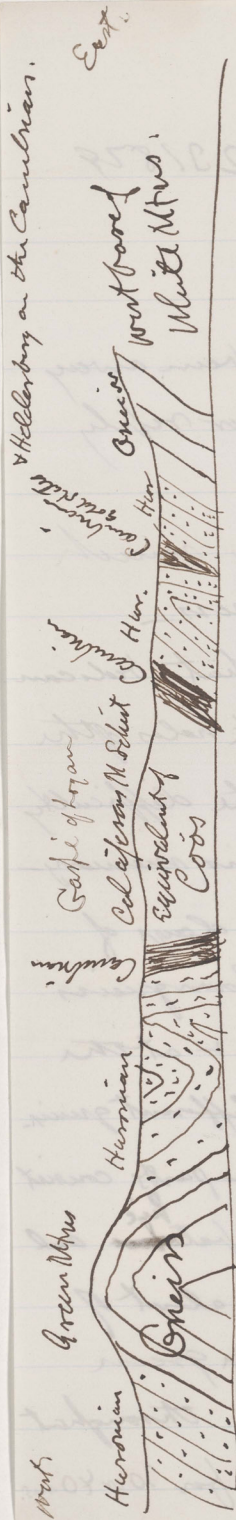 West
Huronian
Green Mtns
Gneiss
Huronian
Cambrian
Gaspé of Logan
Calciferous M Schist
Equivalent of
Coös
Cambrian
Hur.
Cambrian
Hur
Gneiss
+ Helderberg on the Cambrian.
west part of
White Mtns.
East.